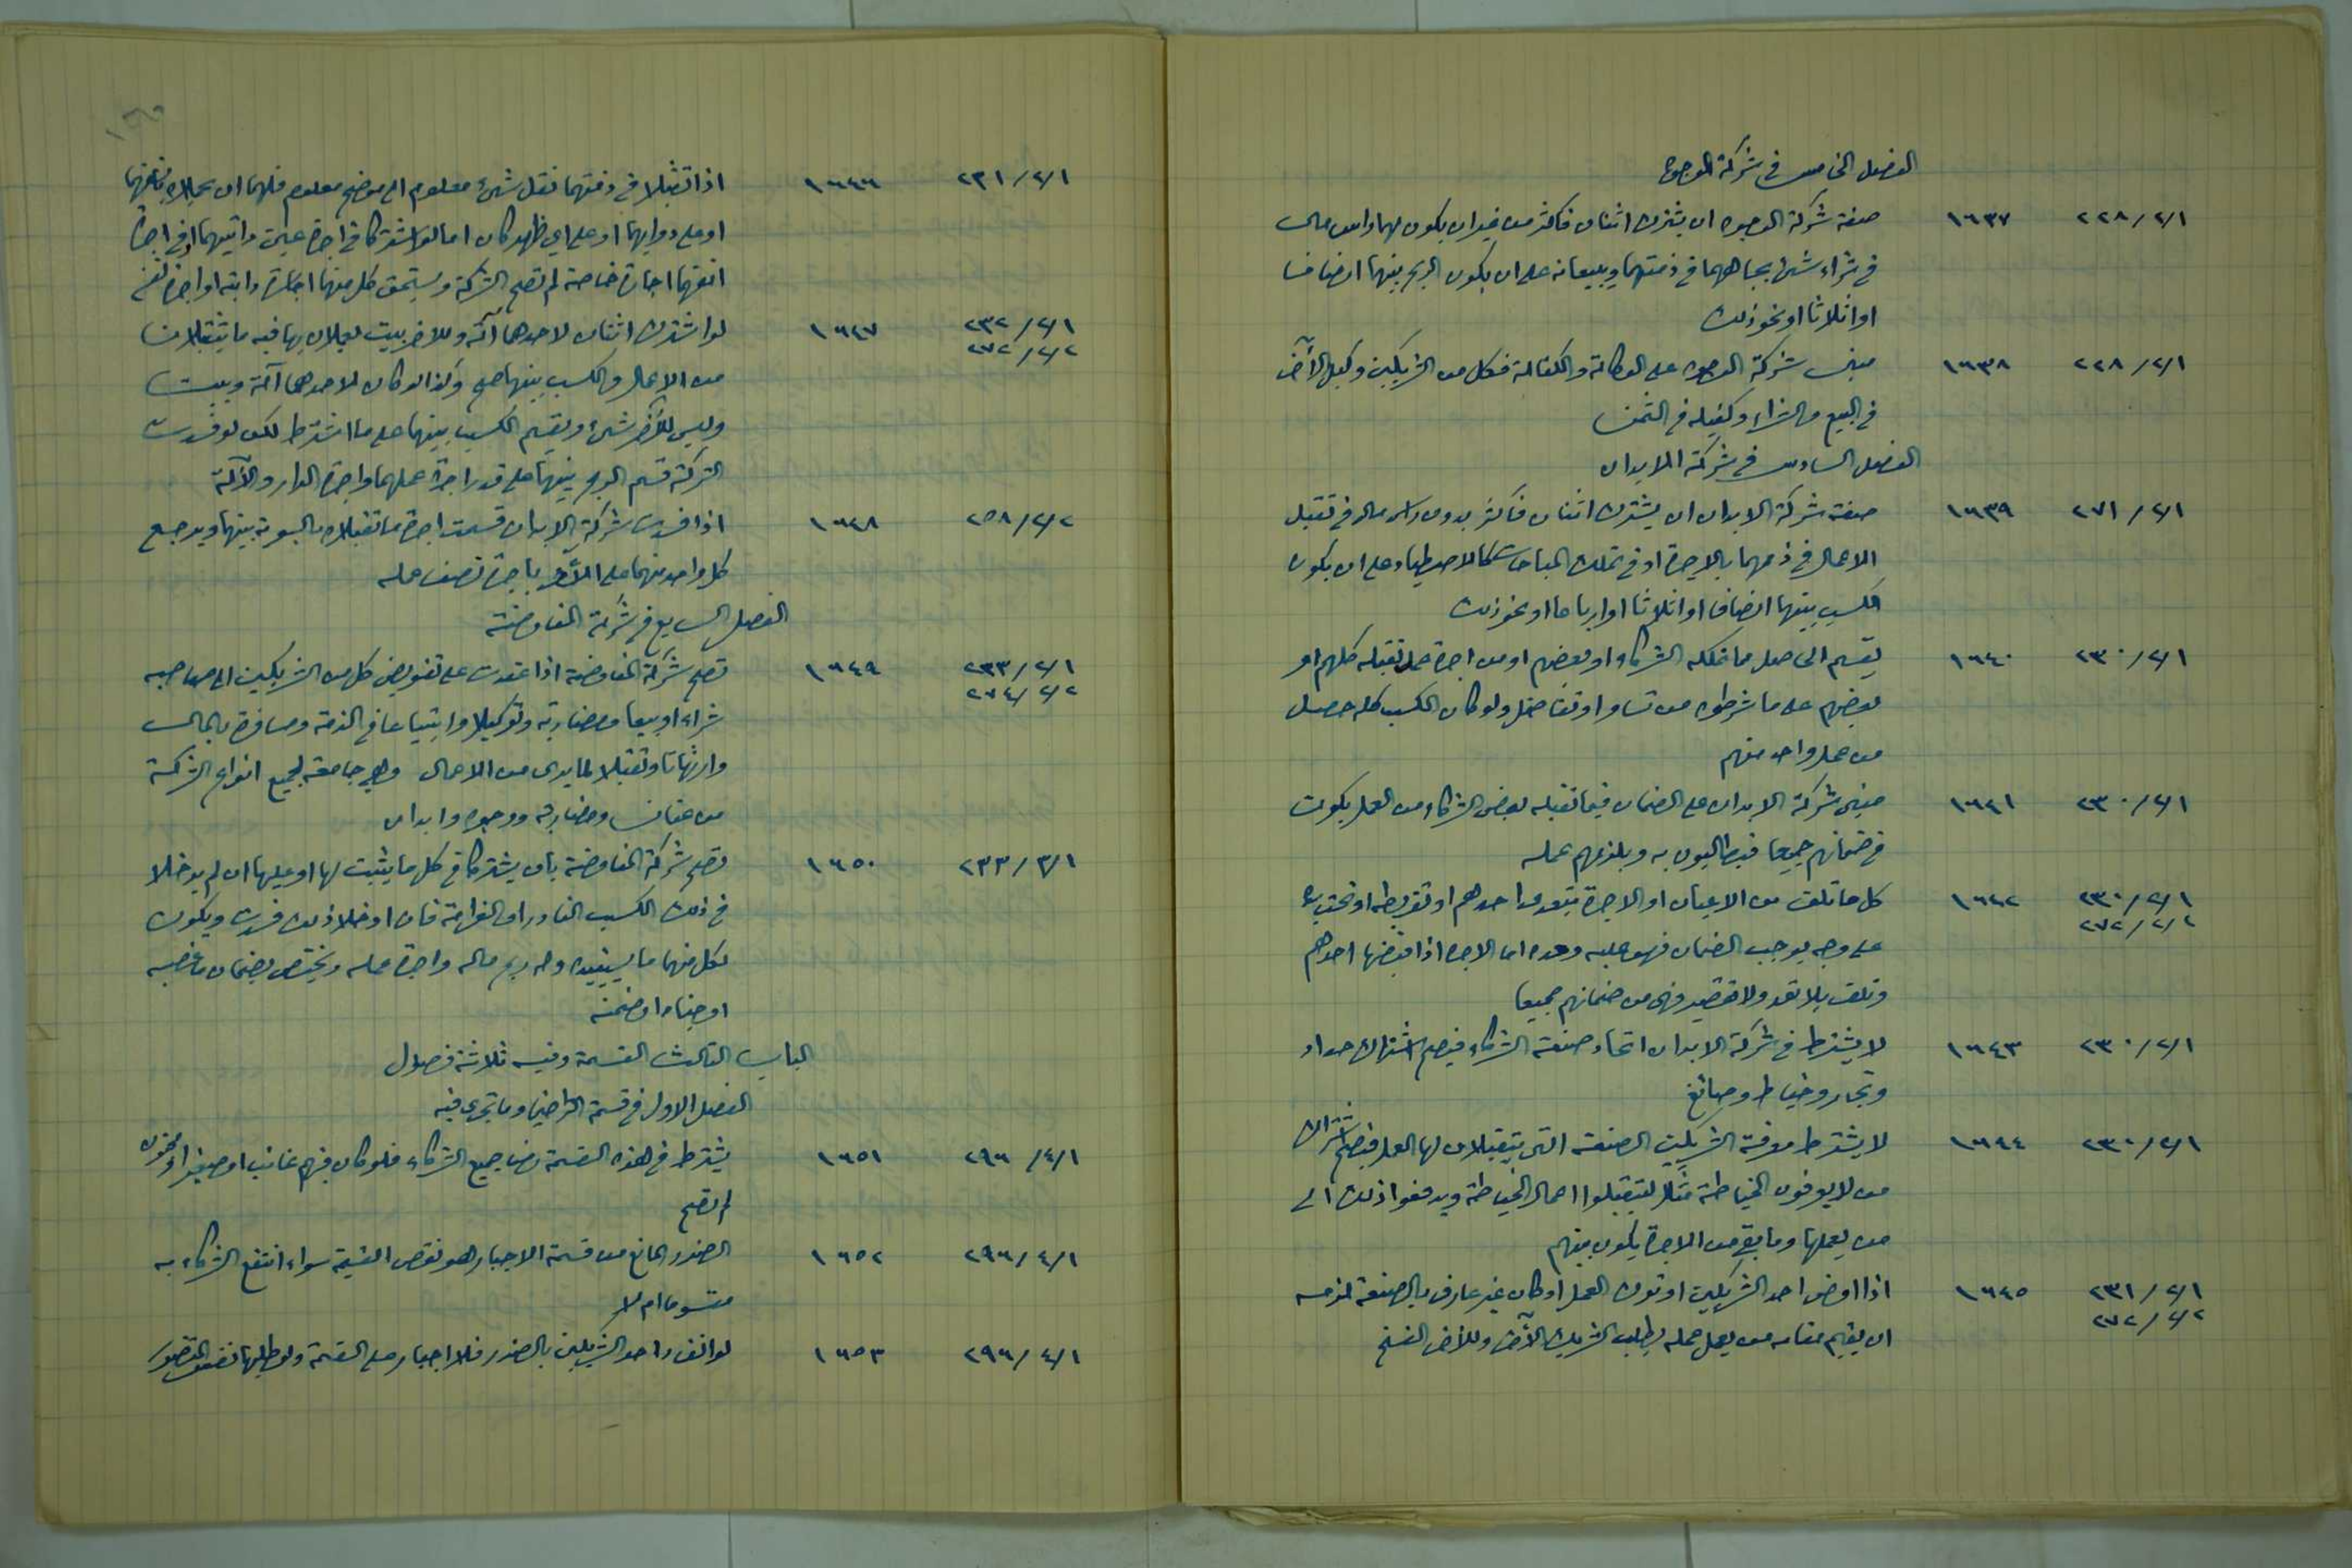 الفصل الخامس في شركة الوجوه
٢٢٨/٢/١ ١٦٣٧ صفة شركة الوجوه ان يشترك اثنان فاكثر من غير ان يكون لهما راس مال
في شراء شئ بجاههما في ذمتهما ويبيعانه على ان يكون الربح بينهما انصافا
او اثلاثا او نحو ذلك
٢٢٨/٢/١ ١٦٣٨ مبنى شركة الوجوه على الوكالة والكفالة فكل من الشريكين وكيل الآخر
في البيع والشراء وكفيله في الثمن
الفصل السادس في شركة الابدان
٢٧١/٢/١ ١٦٣٩ صفة شركة الابدان ان يشترك اثنان فاكثر بدون راس مال في تقبل
الاعمال في ذممهما بالاجرة او في تملك المباحات كالاصطياد على ان يكون
الكسب بينهما انصافا او اثلاثا او ارباعا او نحو ذلك
٢٣٠/٢/١ ١٦٤٠ يقسم الحاصل مما تملكه الشركاء او بعضهم او من اجرة عمل تقبله كلهم او
بعضهم على ما شرطوه من تساو او تفاضل ولو كان الكسب كله حصل
من عمل واحد منهم
٢٣٠/٢/١ ١٦٤١ مبنى شركة الابدان على الضمان فيما تقبله بعض الشركاء من العمل يكون
في ضمانهم جميعا فيطالبون به ويلزمهم عمله
٢٣٠/٢/١ ١٦٤٢ كل ما تلف من الاعيان او الاجرة بتعدي احدهم او تفريطه او تحت يده
٢٧٢/٢/٢
على وجه يوجب الضمان فهو عليه وحده اما الاجرة اذا قبضها احدهم
وتلفت بلا تعد ولا تقصير فهي من ضمانهم جميعا
٢٣٠/٢/١ ١٦٤٣ لا يشترط في شركة الابدان اتحاد صنعة الشركاء فيصح اشتراك حداد
ونجار وخياط وصائغ
٢٣٠/٢/١ ١٦٤٤ لا يشترط معرفة الشريكين الصنعة التي يتقبلان لها العمل فيصح اشتراك
من لا يعرفون الخياطة مثلا ليتقبلوا اعمال الخياطة ويدفعوا ذلك الى
من يعملها وما بقي من الاجرة يكون بينهم
٢٣١/٢/١ ١٦٤٥ اذا مرض احد الشريكين او ترك العمل او كان غير عارف بالصنعة لزمه
٢٧٢/٢/٢
ان يقيم مقامه من يعمل عمله بطلب الشريك الآخر وللآخر الفسخ
٢٣١/٢/١ ١٦٤٦ اذا تقبلا في ذمتهما نقل شئ معلوم الى موضع معلوم فلهما ان يحملاه بانفسهما
او على دوابهما او على اي ظهر كان اما لو اشتركا في اجرة عين دابتيهما او في اجرة
انفسهما اجارة خاصة لم تصح الشركة ويستحق كل منهما اجرة دابته او اجرة نفسه
٢٣٢/٢/١ ١٦٤٧ لو اشترك اثنان لاحدهما آلة وللاخر بيت يعملان بها فيه ما يتقبلان
٢٧٢/٢/٢
من الاعمال والكسب بينهما صح وكذا لو كان لاحدهما آلة وبيت
وليس للآخر شئ ويقسم الكسب بينهما على ما اشترط لكن لو فسدت
الشركة قسم الربح بينهما على قدر اجرة عملهما واجرة الدار والآلة
٢٥٨/٢/٢ ١٦٤٨ اذا فسدت شركة الابدان قسمت اجرة ما تقبلاه بالسوية بينهما ويرجع
كل واحد منهما على الآخر باجرة نصف عمله
الفصل السابع في شركة المفاوضة
٢٣٣/٢/١ ١٦٤٩ تصح شركة المفاوضة اذا عقدت على تفويض كل من الشريكين الى صاحبه
٢٧٤/٢/٢
شراء او بيعا ومضاربة وتوكيلا وابتياعا في الذمة ومسافرة بالمال
وارتهانا وتقبلا لما يرى من الاعمال وهي جامعة لجميع انواع الشركة
من عنان ومضاربة ووجوه وابدان
٢٣٣/٢/١ ١٦٥٠ تصح شركة المفاوضة بان يشتركا في كل ما يثبت لهما او عليهما ان لم يدخلا
في ذلك الكسب النادر او الغرامة فان ادخلا ذلك فسدت ويكون
لكل منهما ما يستفيده وله ربح ماله واجرة عمله ويختص بضمان ما غصبه
او جناه او ضمنه
الباب الثالث القسمة وفيه ثلاثة فصول
الفصل الاول في قسمة التراضي وما تجري فيه
٢٩٦/٤/١ ١٦٥١ يشترط في هذه القسمة رضا جميع الشركاء فلو كان فيهم غائب او صغير او مجنون
لم تصح
٢٩٦/٤/١ ١٦٥٢ الضرر المانع من قسمة الاجبار هو نقص القيمة سواء انتفع الشركاء به
مقسوما ام لا
٢٩٦/٤/١ ١٦٥٣ لو انفرد احد الشريكين بالضرر فلا اجبار على القسمة ولو طلبها المتضرر